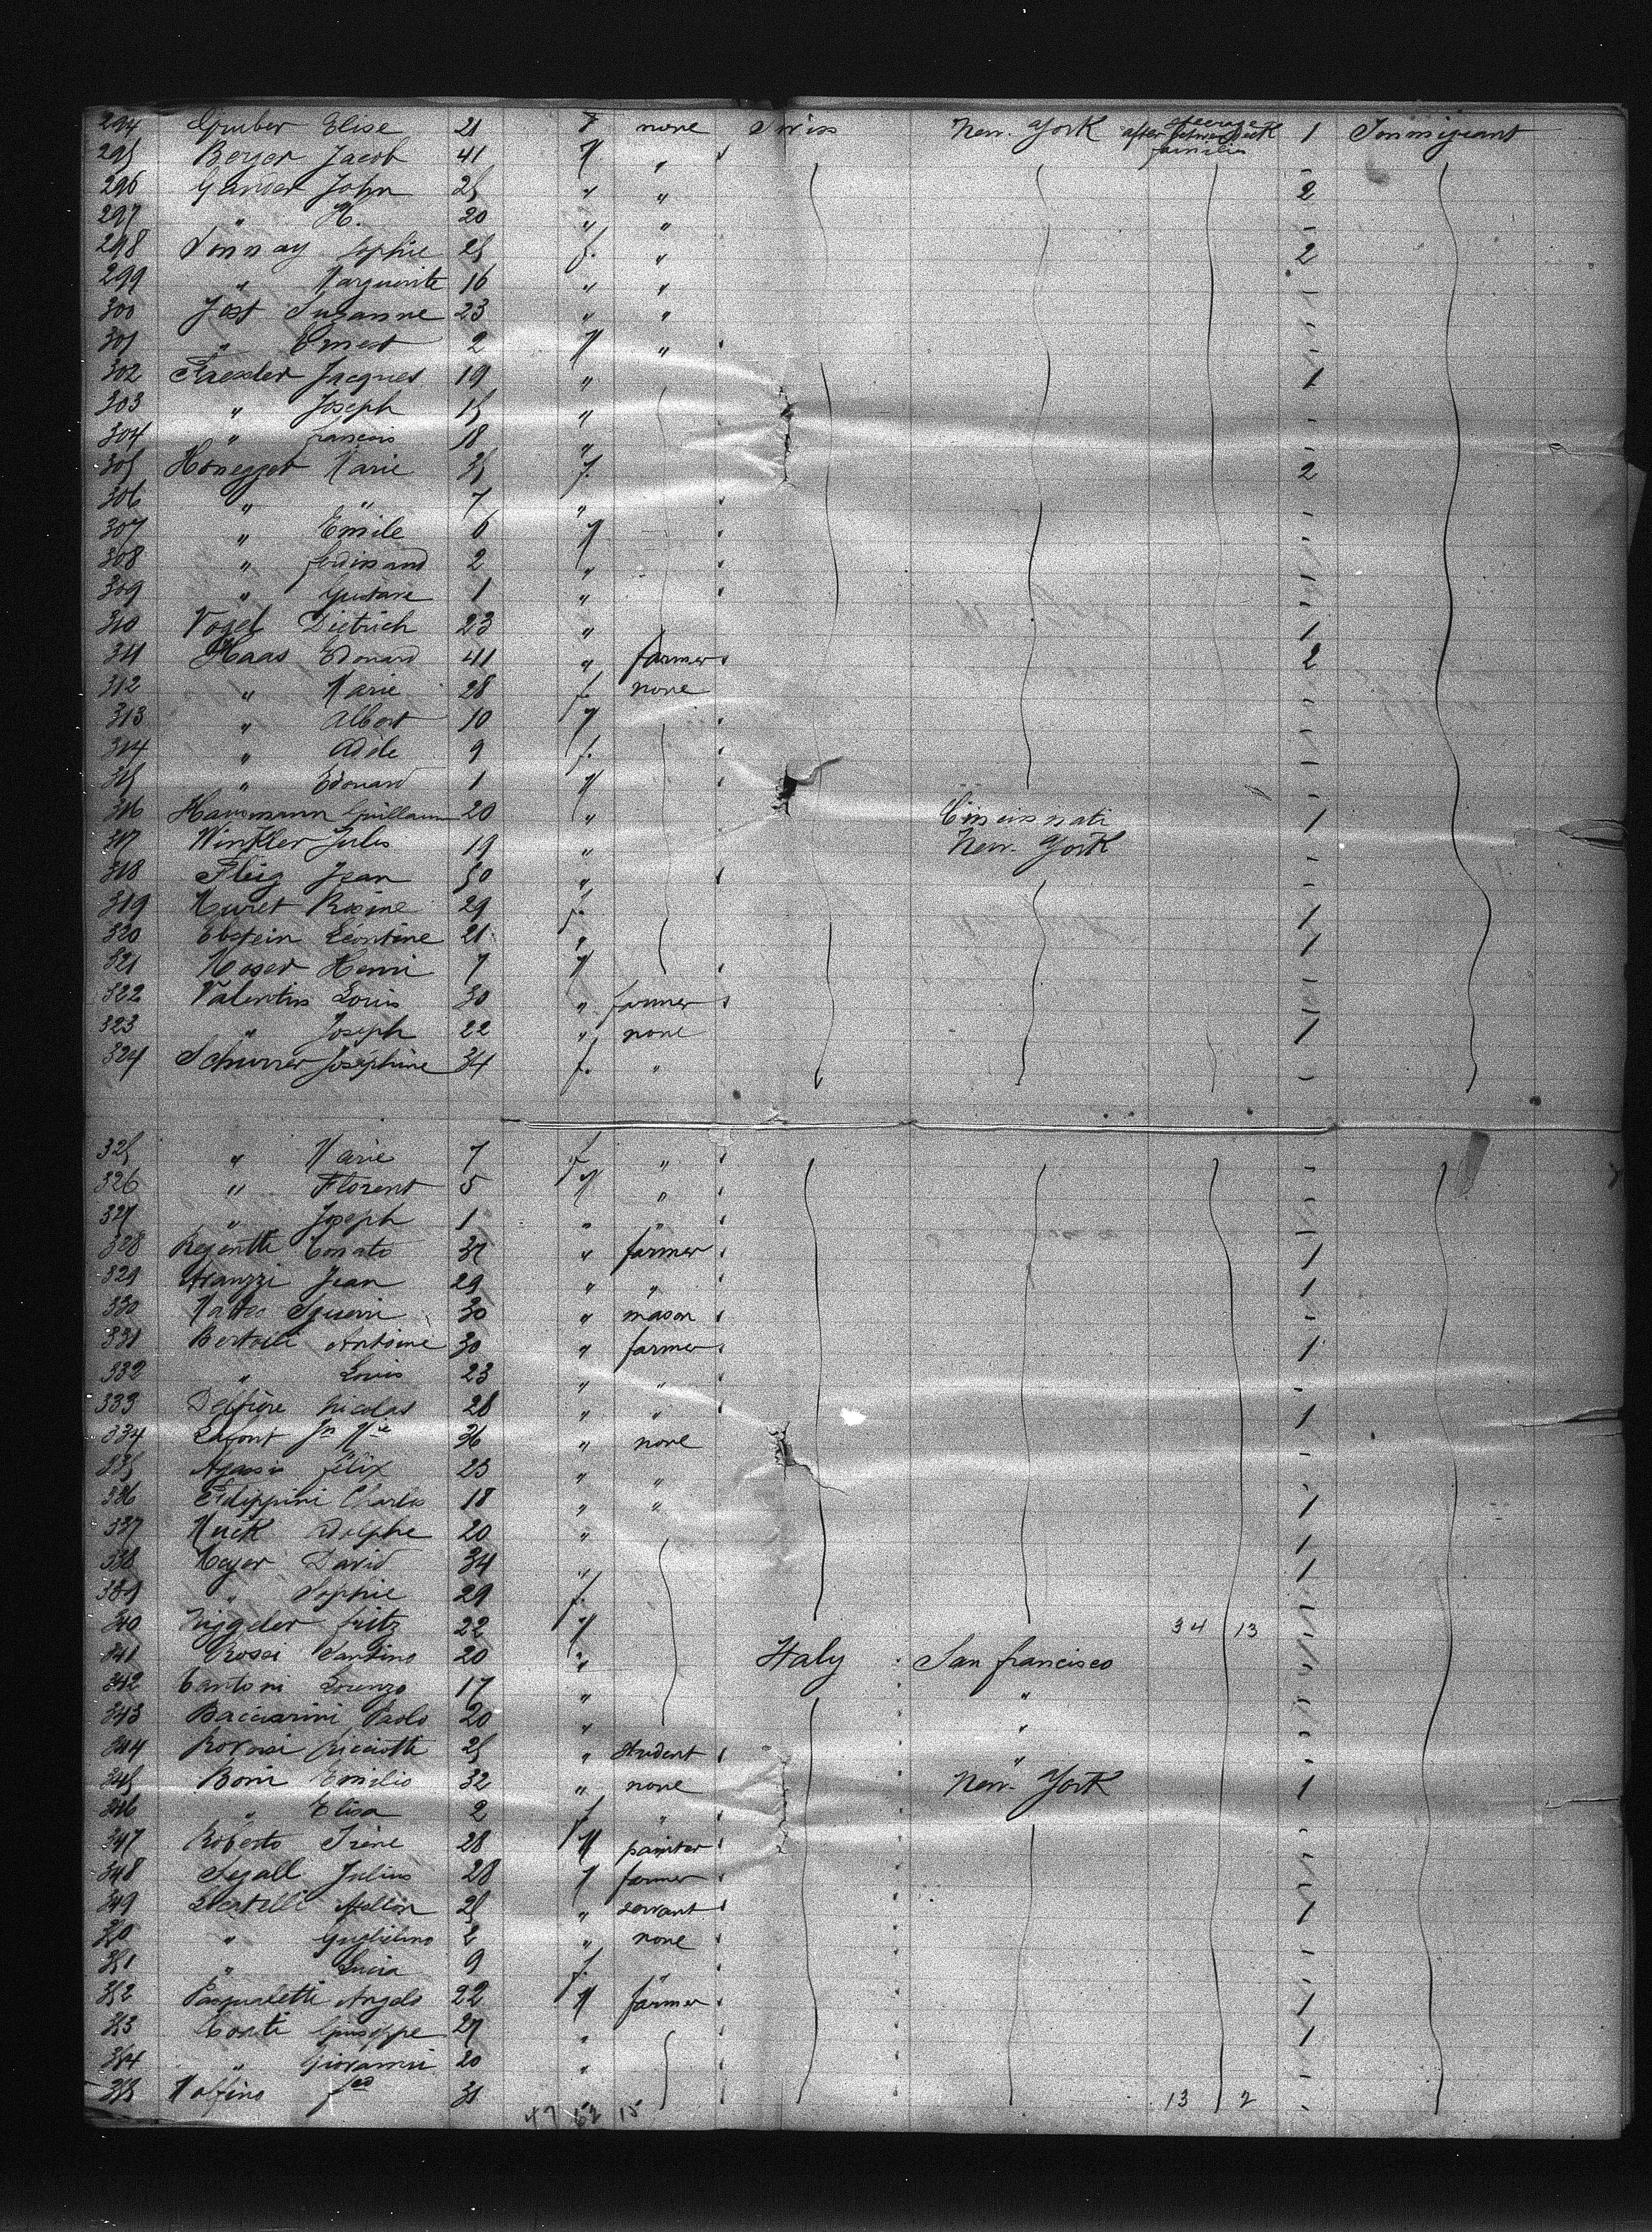 294 Gruber Elise 21 f none Swiss New-York steerage after between deck families 1 Immigrant
295 Beyer Jacob 41 M " -
296 Ganser John 25 " " 2
297 " H. 20 " " -
298 Sonnay Sophie 25 f. " 2
299 " Marguerite 16 " " -
300 Jost Suzanne 23 " " -
301 " Ernest 2 M " -
302 Faessler Jacques 19 " 1
303 " Joseph 15 " -
304 " francois 18 " -
305 Honegger Marie 35 f. 2
306 " " 7 " -
307 " Emile 6 M -
308 " ferdinand 2 " -
309 " Gustave 1 " -
310 Vogel Dietrich 23 " 1
311 Haas Edouard 41 " farmer 2
312 " Marie 28 f. none -
313 " Albert 10 M -
314 " Adele 9 f. -
315 " Edouard 1 M -
316 Hausmann Guillaum 20 " Cincinnati 1
317 Winkler Jules 19 " New-York -
318 Fleig Jean 50 " -
319 Muret Rosine 29 f. 1
320 Ebstein Léontine 21 " 1
321 Moser Henri 7 M -
322 Valentin Louis 30 " farmer -
323 " Joseph 22 " none 1
324 Schurrer Josephine 34 f. " -
325 " Marie 7 f " -
326 " Florent 5 M " -
327 " Joseph 1 " " -
328 Conato 37 " farmer 1
329 Jean 29 " " 1
330 30 " mason -
331 Antoine 30 " farmer 1
332 " Louis 23 " " -
333 Delfiore Nicolas 28 " " 1
334 Lafont Jn Mie 36 " none -
335 Agassis félix 23 " " -
336 Filippini Charles 18 " " 1
337 Muck Adolphe 20 " 1
338 Meyer David 34 " 1
339 " Sophie 29 f. -
340 Niggeler fritz 22 M 34 13 -
341 Rossi Santino 20 " Italy San francisco -
342 Cantoni Lorenzo 17 " " -
343 Bacciarini Paolo 20 " " -
344 Ricciotti 25 " student " -
345 Boni Emilio 32 " none New-York 1
346 " Elisa 2 f. " -
347 Roberto Irene 28 M painter -
348 Segall Julius 28 " farmer -
349 25 " servant 1
350 " Guglielmo 2 " none -
351 " Lucia 9 f. " -
352 Pasqualetti Angelo 22 M farmer 1
353 Conti Giuseppe 27 " 1
354 " Giovanni 20 " -
355 31 13 2 -
47 62 15